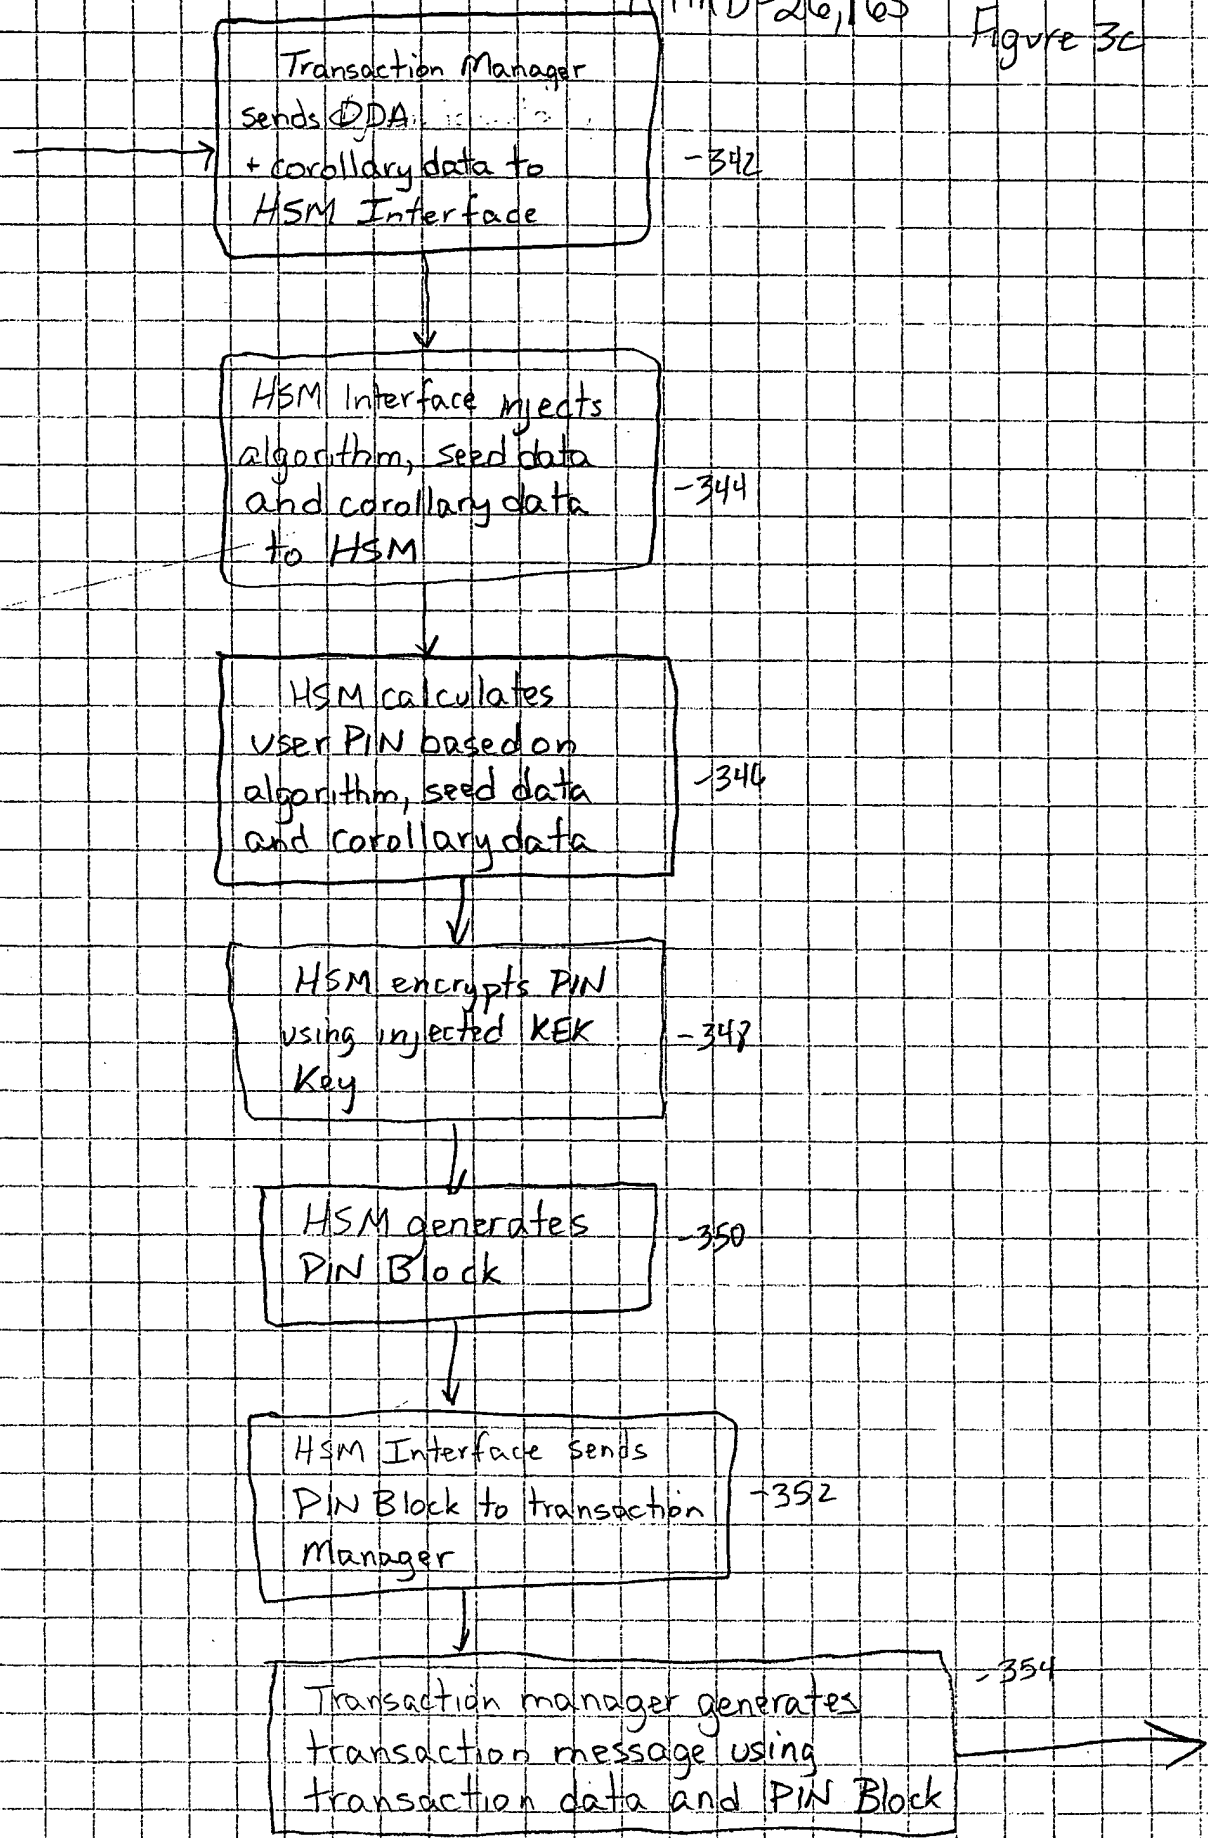 Figure 3c
Transaction Manager
sends DDA
+ corollary data to
HSM Interface
-342
HSM Interface injects
algorithm, seed data
and corollary data
to HSM
-344
HSM calculates
user PIN based on
algorithm, seed data
and corollary data
-346
HSM encrypts PIN
using injected KEK
Key
-348
HSM generates
PIN Block
-350
HSM Interface sends
PIN Block to transaction
Manager
-352
-354
Transaction manager generates
transaction message using
transaction data and PIN Block